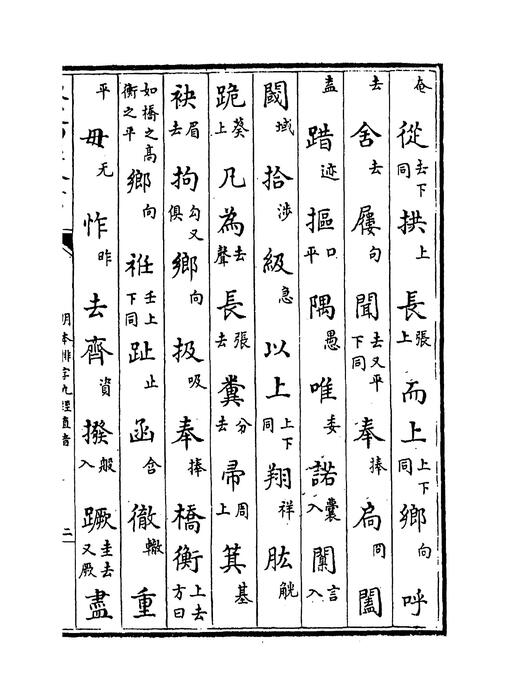 奄從去下同拱上長張上而上上下同鄉向呼
去舍去屨句聞去又平下同奉捧扃冋闔
盍踖迹摳口平隅愚唯委諾囊入闑言入
閾域拾涉級急以上上下同翔祥肱觥
跪葵上凡為去聲長張去糞分去帚周上箕基
袂眉去拘勾又俱鄉向扱吸奉捧橋衡上去方曰
如橋之高衡之平鄉向袵壬上下同趾止函含徹轍重
平毋无怍昨去齊資撥般入蹶圭去又厥盡
明本排字九經直音
二